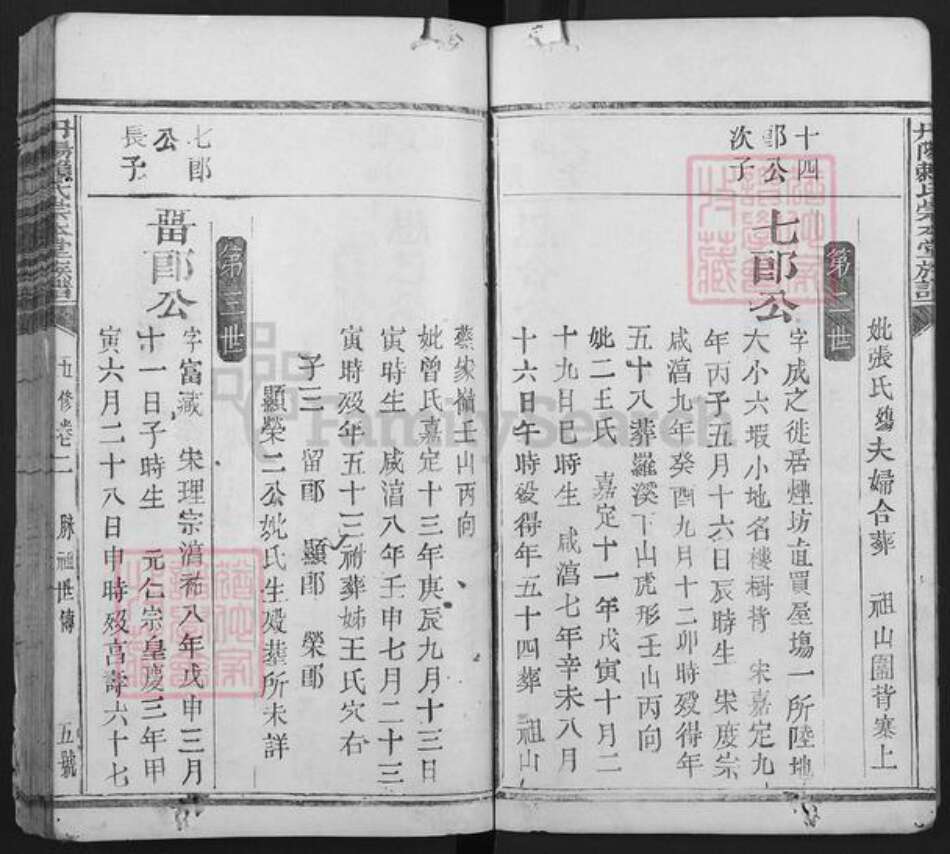 妣張氏塟夫婦合葬　祖山圖背寨上
第二世
十四郎公次子
七郎公
字成之徙居煙坊直買屋塲一所陸地
大小六塅小地名樓樹背　宋嘉定九
年丙子五月十六日辰時生　宋度宗
咸淳九年癸酉九月十二卯時歿得年
五十八葬羅溪下山虎形壬山丙向
妣二王氏　嘉定十一年戊寅十月二
十九日巳時生　咸淳七年辛未八月
十六日午時歿得年五十四葬　祖山
蔡嶺壬山丙向
妣曾氏嘉定十三年庚辰九月十三日
寅時生　咸淳八年壬申七月二十三
寅時歿年五十三祔葬姊王氏穴右
子三　留郎　顯郎　榮郎
顯榮二公妣氏生歿葬所未詳
第三世
七郎公長子
留郎公
字富藏　宋理宗淳祐八年戊申三月
十一日子時生　元仁宗皇慶三年甲
寅六月二十八日申時歿享壽六十七
丹陽賴氏崇本堂族譜
五修卷二
脉祖世傳
五號
FamilySearch